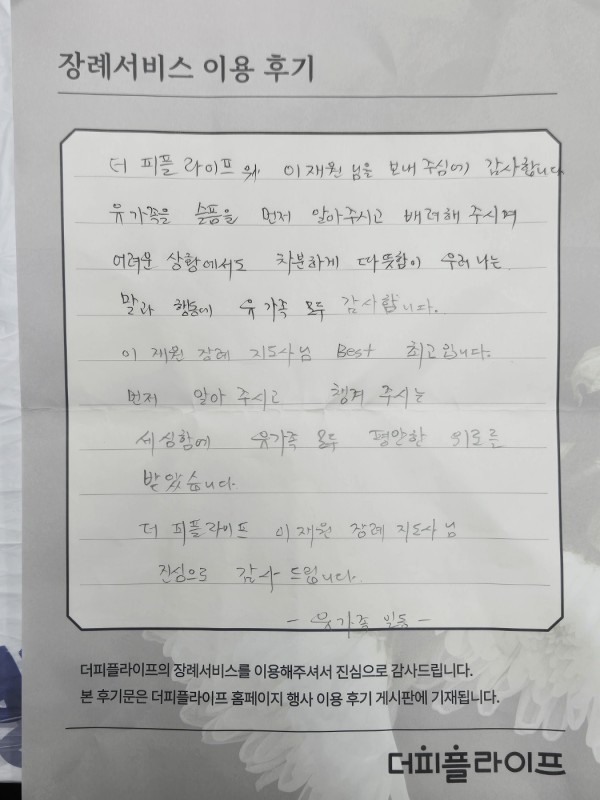 장례서비스 이용 후기
더 피플 라이프의 이재원님을 보내주심에 감사합니다
유가족을 슬픔을 먼저 알아주시고 배려해 주시며
어려운 상황에서도 차분하게 따뜻함이 우러나는
말과 행동에 유가족 모두 감사합니다.
이재원 장례 지도사님 Best 최고입니다.
먼저 알아 주시고 챙겨 주시는
세심함에 유가족 모두 평안한 위로를
받았습니다.
더 피플라이프 이재원 장례 지도사님
진심으로 감사 드립니다.
- 유가족 일동 -
더피플라이프의 장례서비스를 이용해주셔서 진심으로 감사드립니다.
본 후기문은 더피플라이프 홈페이지 행사 이용 후기 게시판에 기재됩니다.
더피플라이프